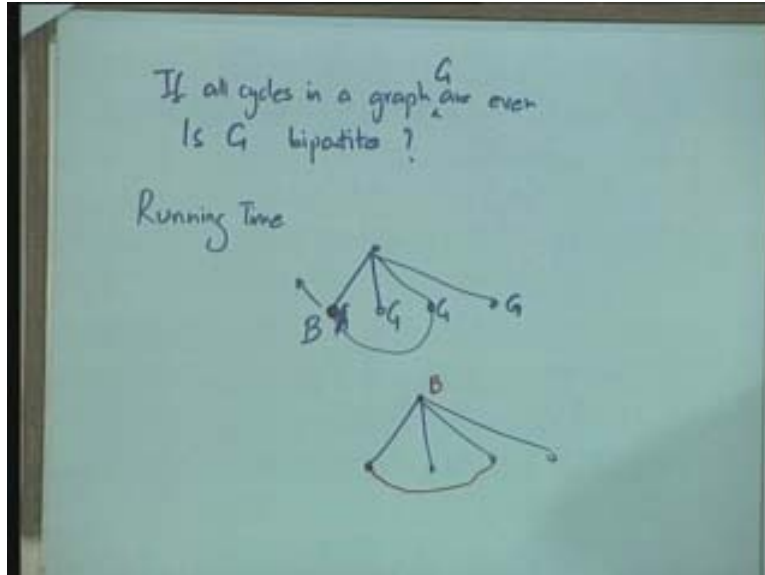 If all cycles in a graph G are even
Is G bipartite ?
Running Time
B G G G
B